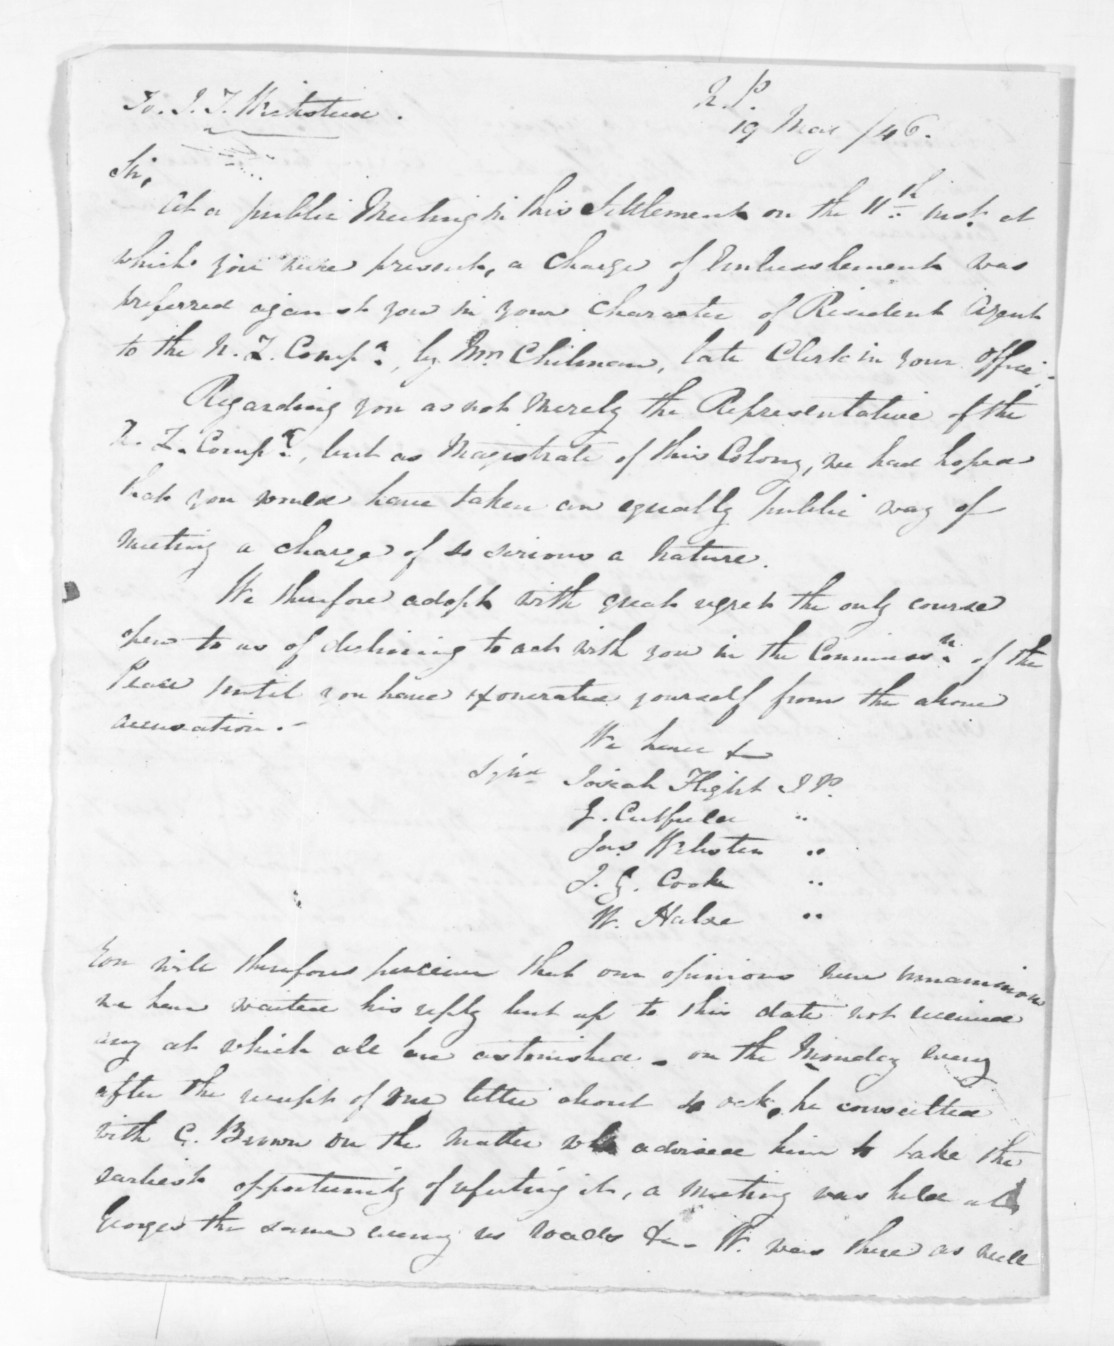 N. P.
19 May /46.
To. J. T. Wicksteed.
Sir,
At a public Meeting in this Settlement on the 11th inst. at
which you were present, a charge of Embezzlement was
preferred against you in your character of Resident Agent
to the N. Z. Compa., by Mr. Chilman, late Clerk in your Office.
Regarding you as not merely the Representative of the
N. Z. Compa., but as Magistrate of this Colony, we had hoped
that you would have taken an equally public way of
meeting a charge of so serious a nature.
We therefore adopt with great regret the only course
open to us of declining to act with you in the Commissn. of the
Peace until you have exonerated yourself from the above
accusation.-
We have &
Signd Josiah Flight J P.
G. Cutfield "
Jas Webster "
J. G. Cooke "
W. Halse "
You will therefore perceive that our opinions were unanimous
we have waited his reply but up to this date not received
any at which all are astonished - on the Monday eveng
after the receipt of our letter about 4 ock, he consulted
with C. Brown on the matter who advised him to take the
earliest opportunity of refuting it, a meeting was held at
Georges the same eveng re roads &- W. was there as well